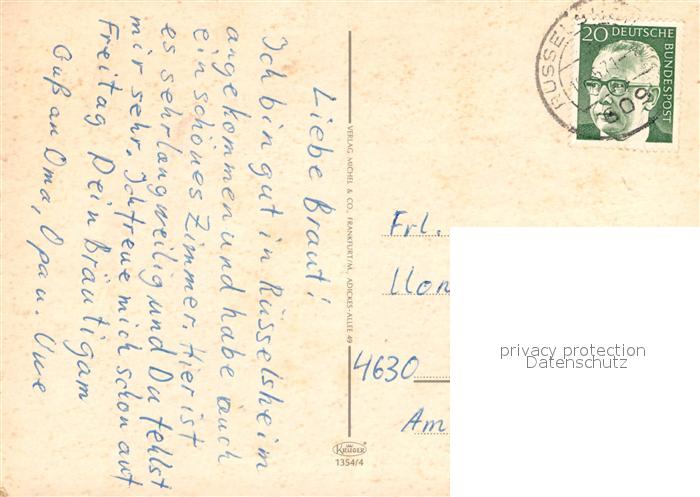 Liebe Braut!
Ich bin gut in Rüsselsheim
angekommen und habe auch
ein schönes Zimmer. Hier ist
es sehr langweilig und Du fehlst
mir sehr. Ich freue mich schon auf
Freitag Dein Bräutigam
Gruß an Oma, Opa u. Uwe
VERLAG MICHEL & CO., FRANKFURT/M., ADICKES-ALLEE 49
KRÜGER
1354/4
20 DEUTSCHE
BUNDESPOST
RÜSSELSHEIM
Frl.
4630
Am
privacy protection
Datenschutz